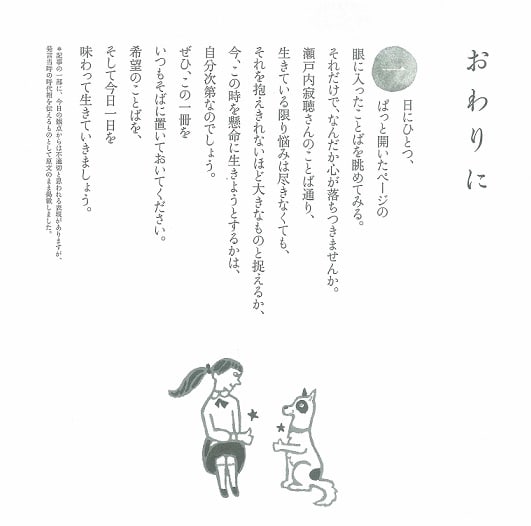 おわりに
一日にひとつ、
ぱっと開いたページの
眼に入ったことばを眺めてみる。
それだけで、なんだか心が落ちつきませんか。
瀬戸内寂聴さんのことば通り、
生きている限り悩みは尽きなくても、
それを抱えきれないほど大きなものと捉えるか、
今、この時を懸命に生きようとするかは、
自分次第なのでしょう。
ぜひ、この一冊を
いつもそばに置いておいてください。
希望のことばを、
そして今日一日を
味わって生きていきましょう。
＊記事の一部に、今日の観点からは不適切と思われる表現がありますが、
発言当時の時代相を伝えるものとして原文のまま掲載しました。